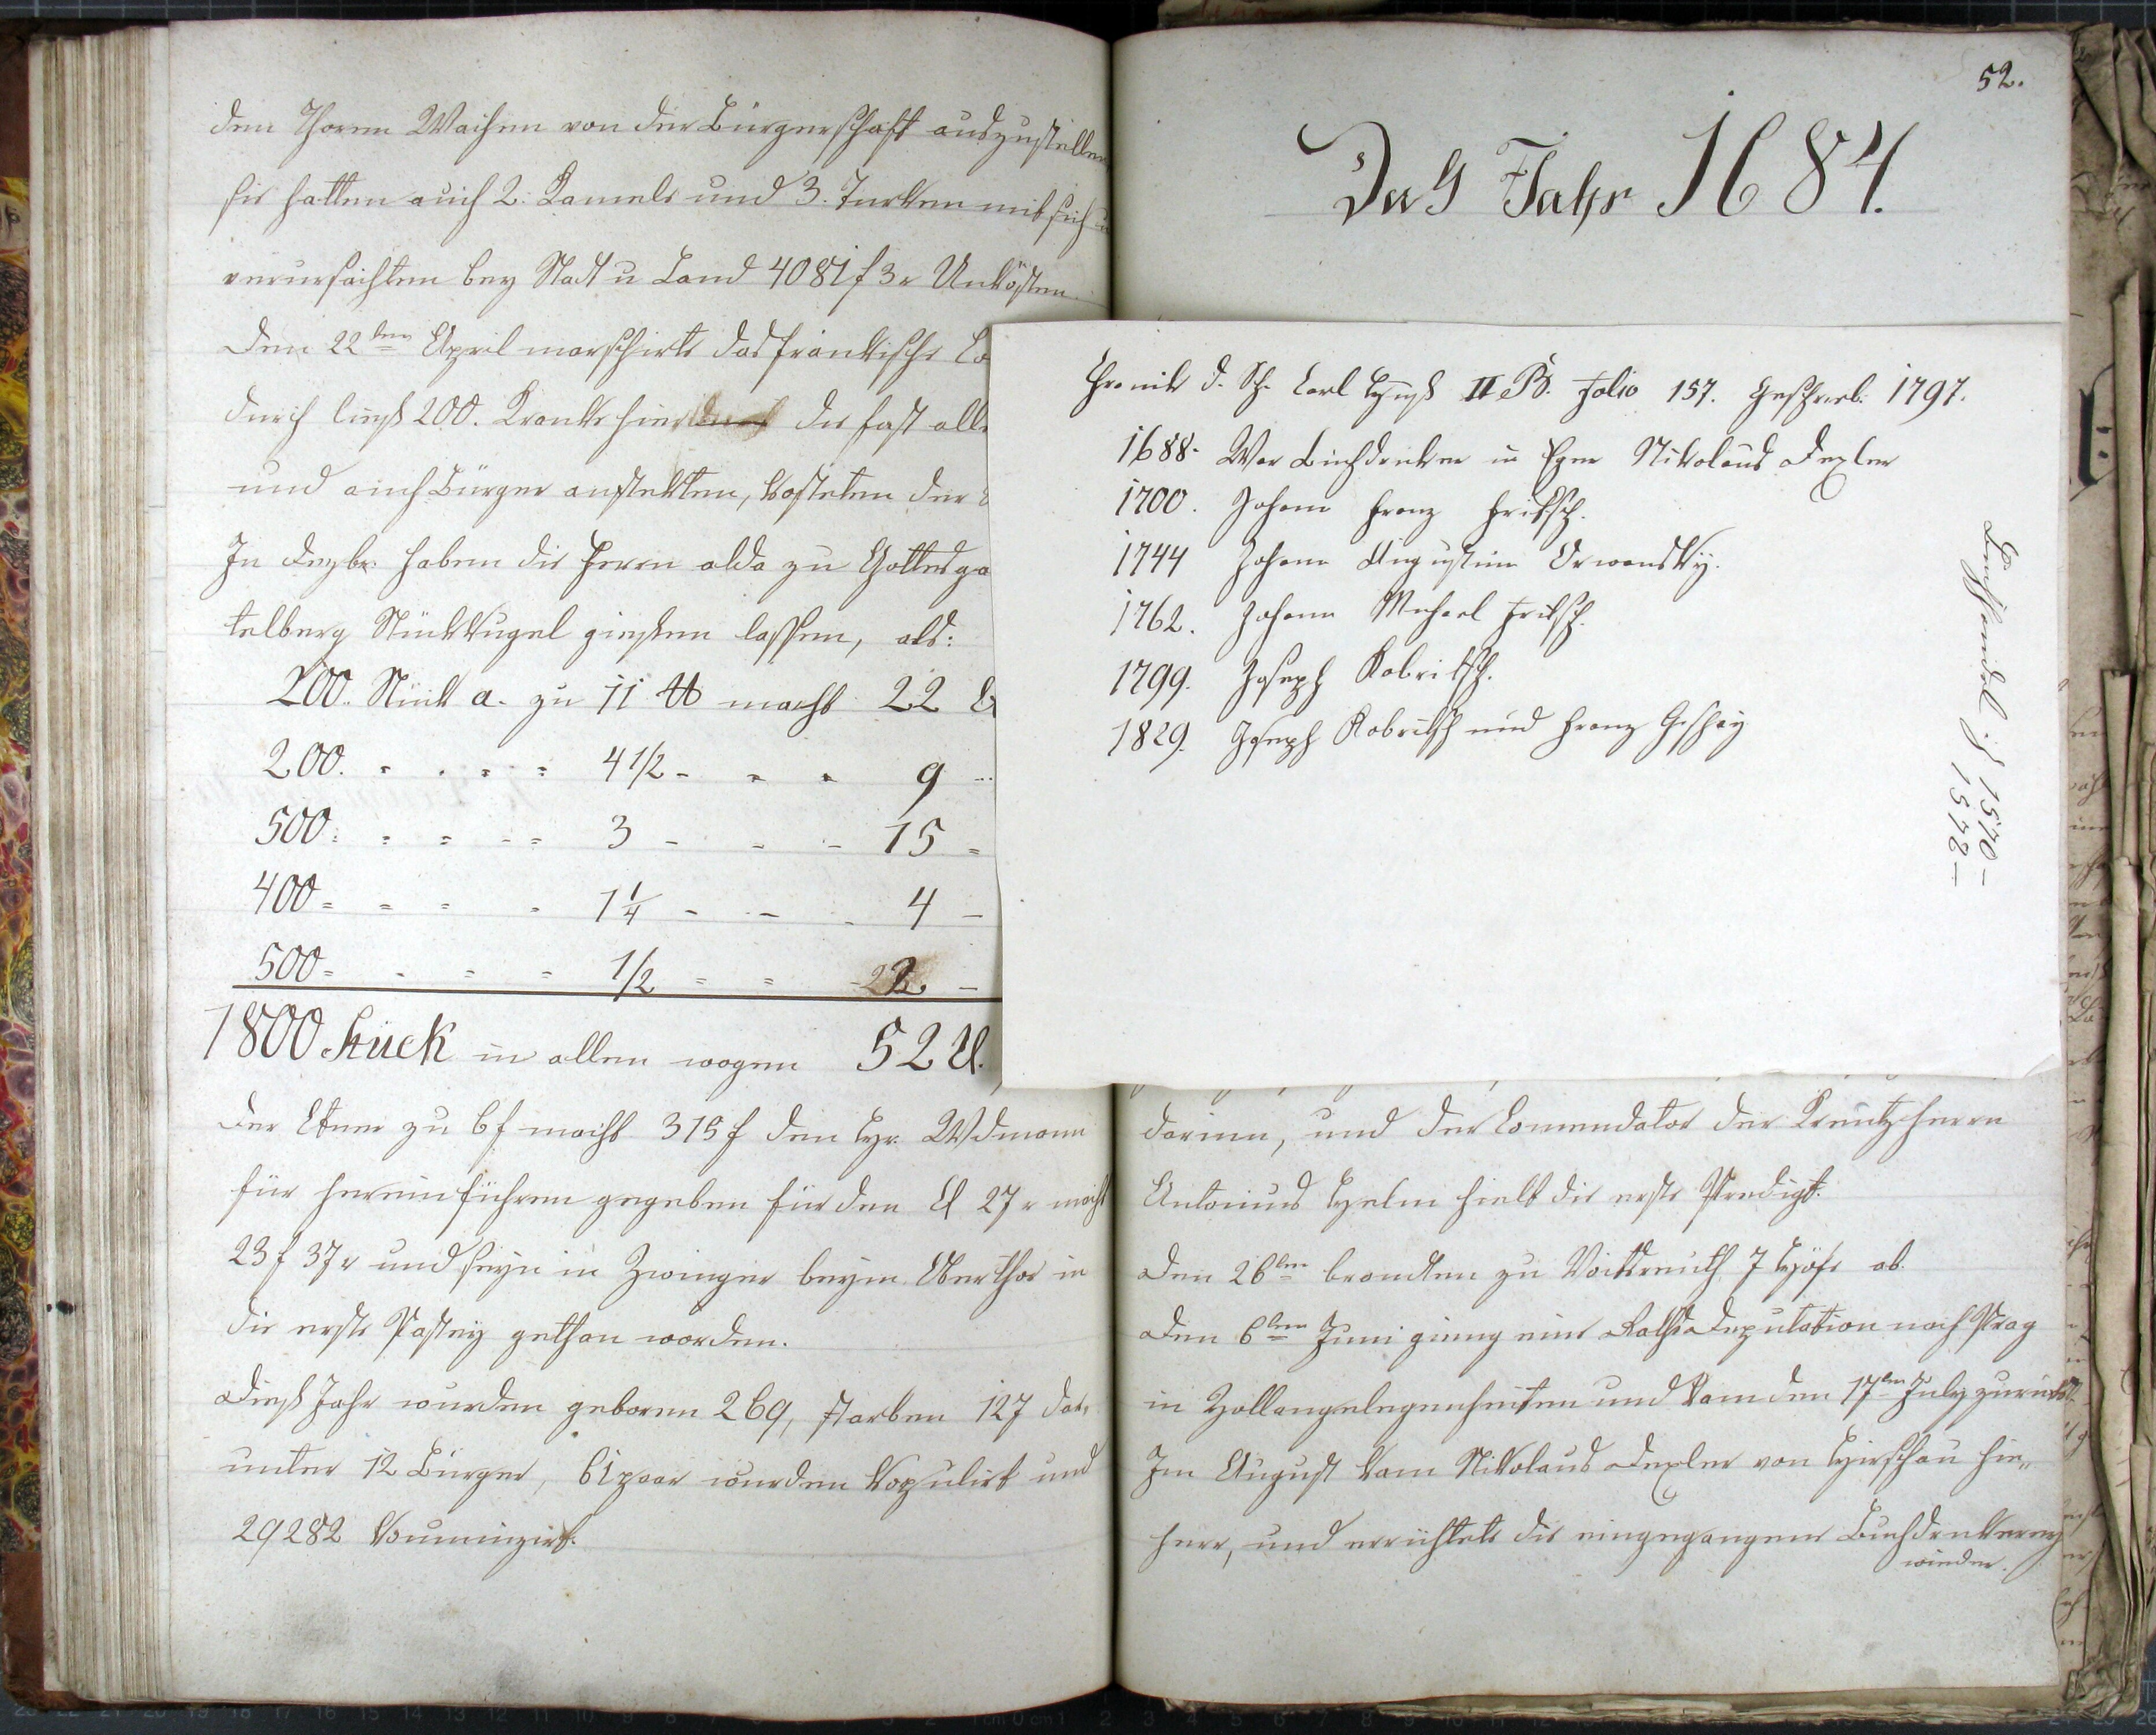 den Thoren Wachen von der Bürgerschaft auszustellen
sie hatten auch 2. Kamele und 3. Turken mit sich u
verursachten bey Stadt u Land 4081 f 3 x Unkösten.
den 22ten April marschirte das fränkische
durch ließ 200. Kranke hier die fast alle
und auch Bürger anstekten, kosteten der
In Dezbr. haben die Herrn alda zu Gottesga
telberg Stückkugel gießen lassen, als:
200. Stück a. zu 11 ℔ macht 22
200. 4 1/2 - 9
500: 3 - 15
400 1 1/4 - 4
500 1/2 2
1800 Stück in allen wogen 52
der Ctner zu 6 f macht 315 f dem Hr. Widmann
für hereinführen gegeben für den Ct 27 x macht
23 f 37 x und seyn in Zwinger beym Oberthor in
die erste Pastey gethan worden.
Dieß Jahr wurden geboren 269, starben 127 dar,
unter 12 Bürger, 61 paar wurden kopulirt und
29282 kommunizirt.
52.
Das Jahr 1684.
Chronik d. Sch. Carl Huß II B. Folio 157. Geschrieb. 1797.
1688. War Buchdruker in Eger Nikolaus Dexler
1700. Johann Franz Fritsch.
1744 Johann Augustin Orwansky.
1762. Johann Michael Fritsch.
1799. Joseph Kobritsch.
1829. Joseph Kobritsch und Franz Gschay
1570 -
1572 -
darinn, und der Comendator der Kreutzherrn
Antonius Helm hielt die erste Predigt.
den 26ten brandten zu Voitsreuth 7 Höfe ab.
den 6ten Juni gieng eine Raths Deputation nach Prag
in Zollangelegenheiten und kam den 17ten July zurück.
Im August kam Nikolaus Dexler von Hirschau hie„
herr, und errichtete die eingegangene Buchdrukerey
wieder.